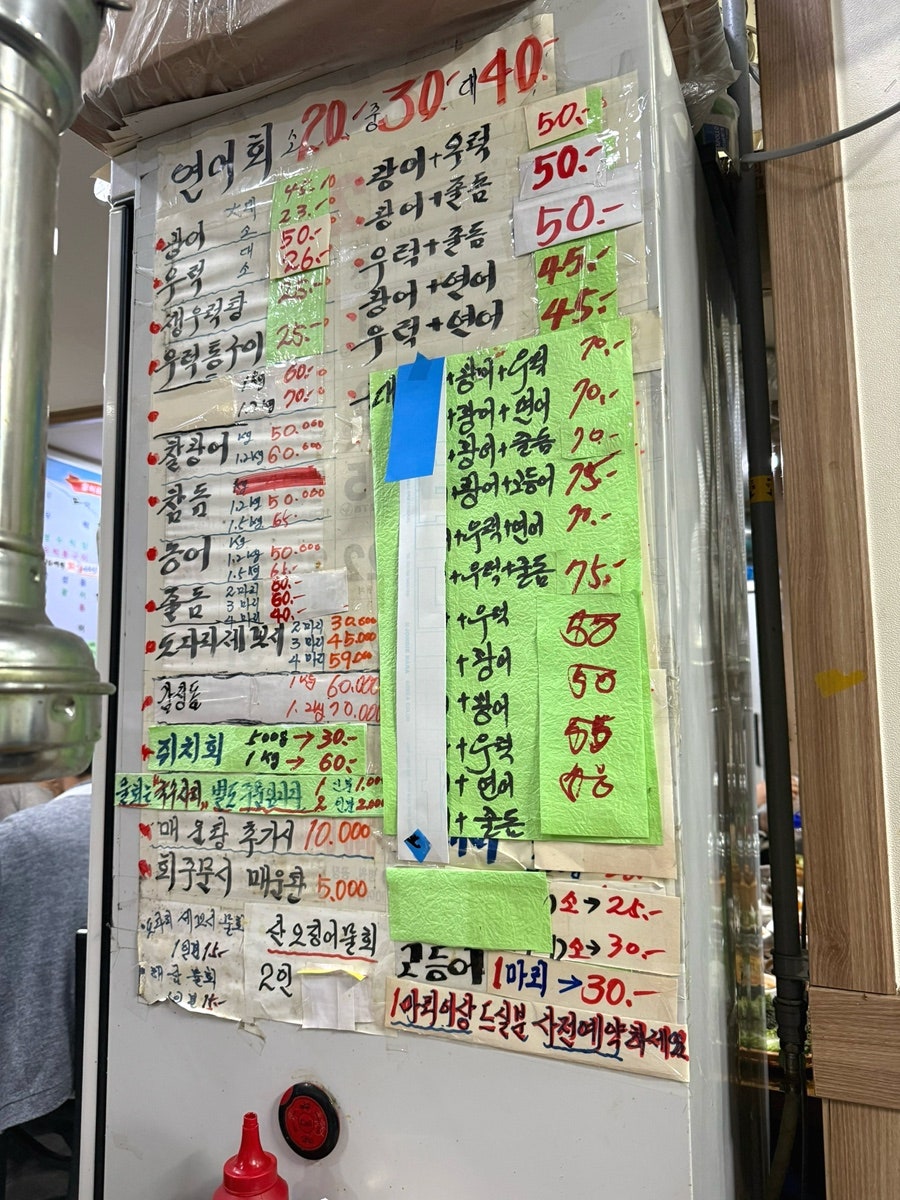 연어회 소 20.- 중 30.- 대 40.-
광어 대 45.-
소 23.-
우럭 대 50.-
소 26.-
생우럭탕 25.-
우럭통구이 25.-
1kg 60.-
1.2kg 70.-
찰광어 kg 50.000
1.2kg 60.000
참돔
1.2kg 50.000
1.5kg 65.-
농어 1kg
1.2kg 50.000
1.5kg 65.-
줄돔 2마리
3마리 60.-
4마리 40.-
도다리세꼬시 2마리 30.000
3마리 45.000
4마리 59.000
감성돔 1kg 60.000
1.2kg 70.000
쥐치회 500g → 30.-
1kg → 60.-
별도 1인분 1.000
2인분 2.000
매운탕 추가시 10.000
회주문시 매운탕 5.000
도다리 세꼬시 물회
1인분 15.-
해삼 물회
1인분 15.-
산오징어물회
2인
광어+우럭 50.-
광어+줄돔 50.-
우럭+줄돔 50.-
광어+연어 45.-
우럭+연어 45.-
+광어+우럭 70.-
+광어+연어 70.-
+광어+줄돔 70.-
+광어+고등어 75.-
+우럭+연어 70.-
+우럭+줄돔 75.-
+우럭
+광어 50
+광어 55
+우럭
+연어
+줄돔
)소→25.-
)소→30.-
고등어 1마리→30.-
1마리이상 드실분 사전예약하세요